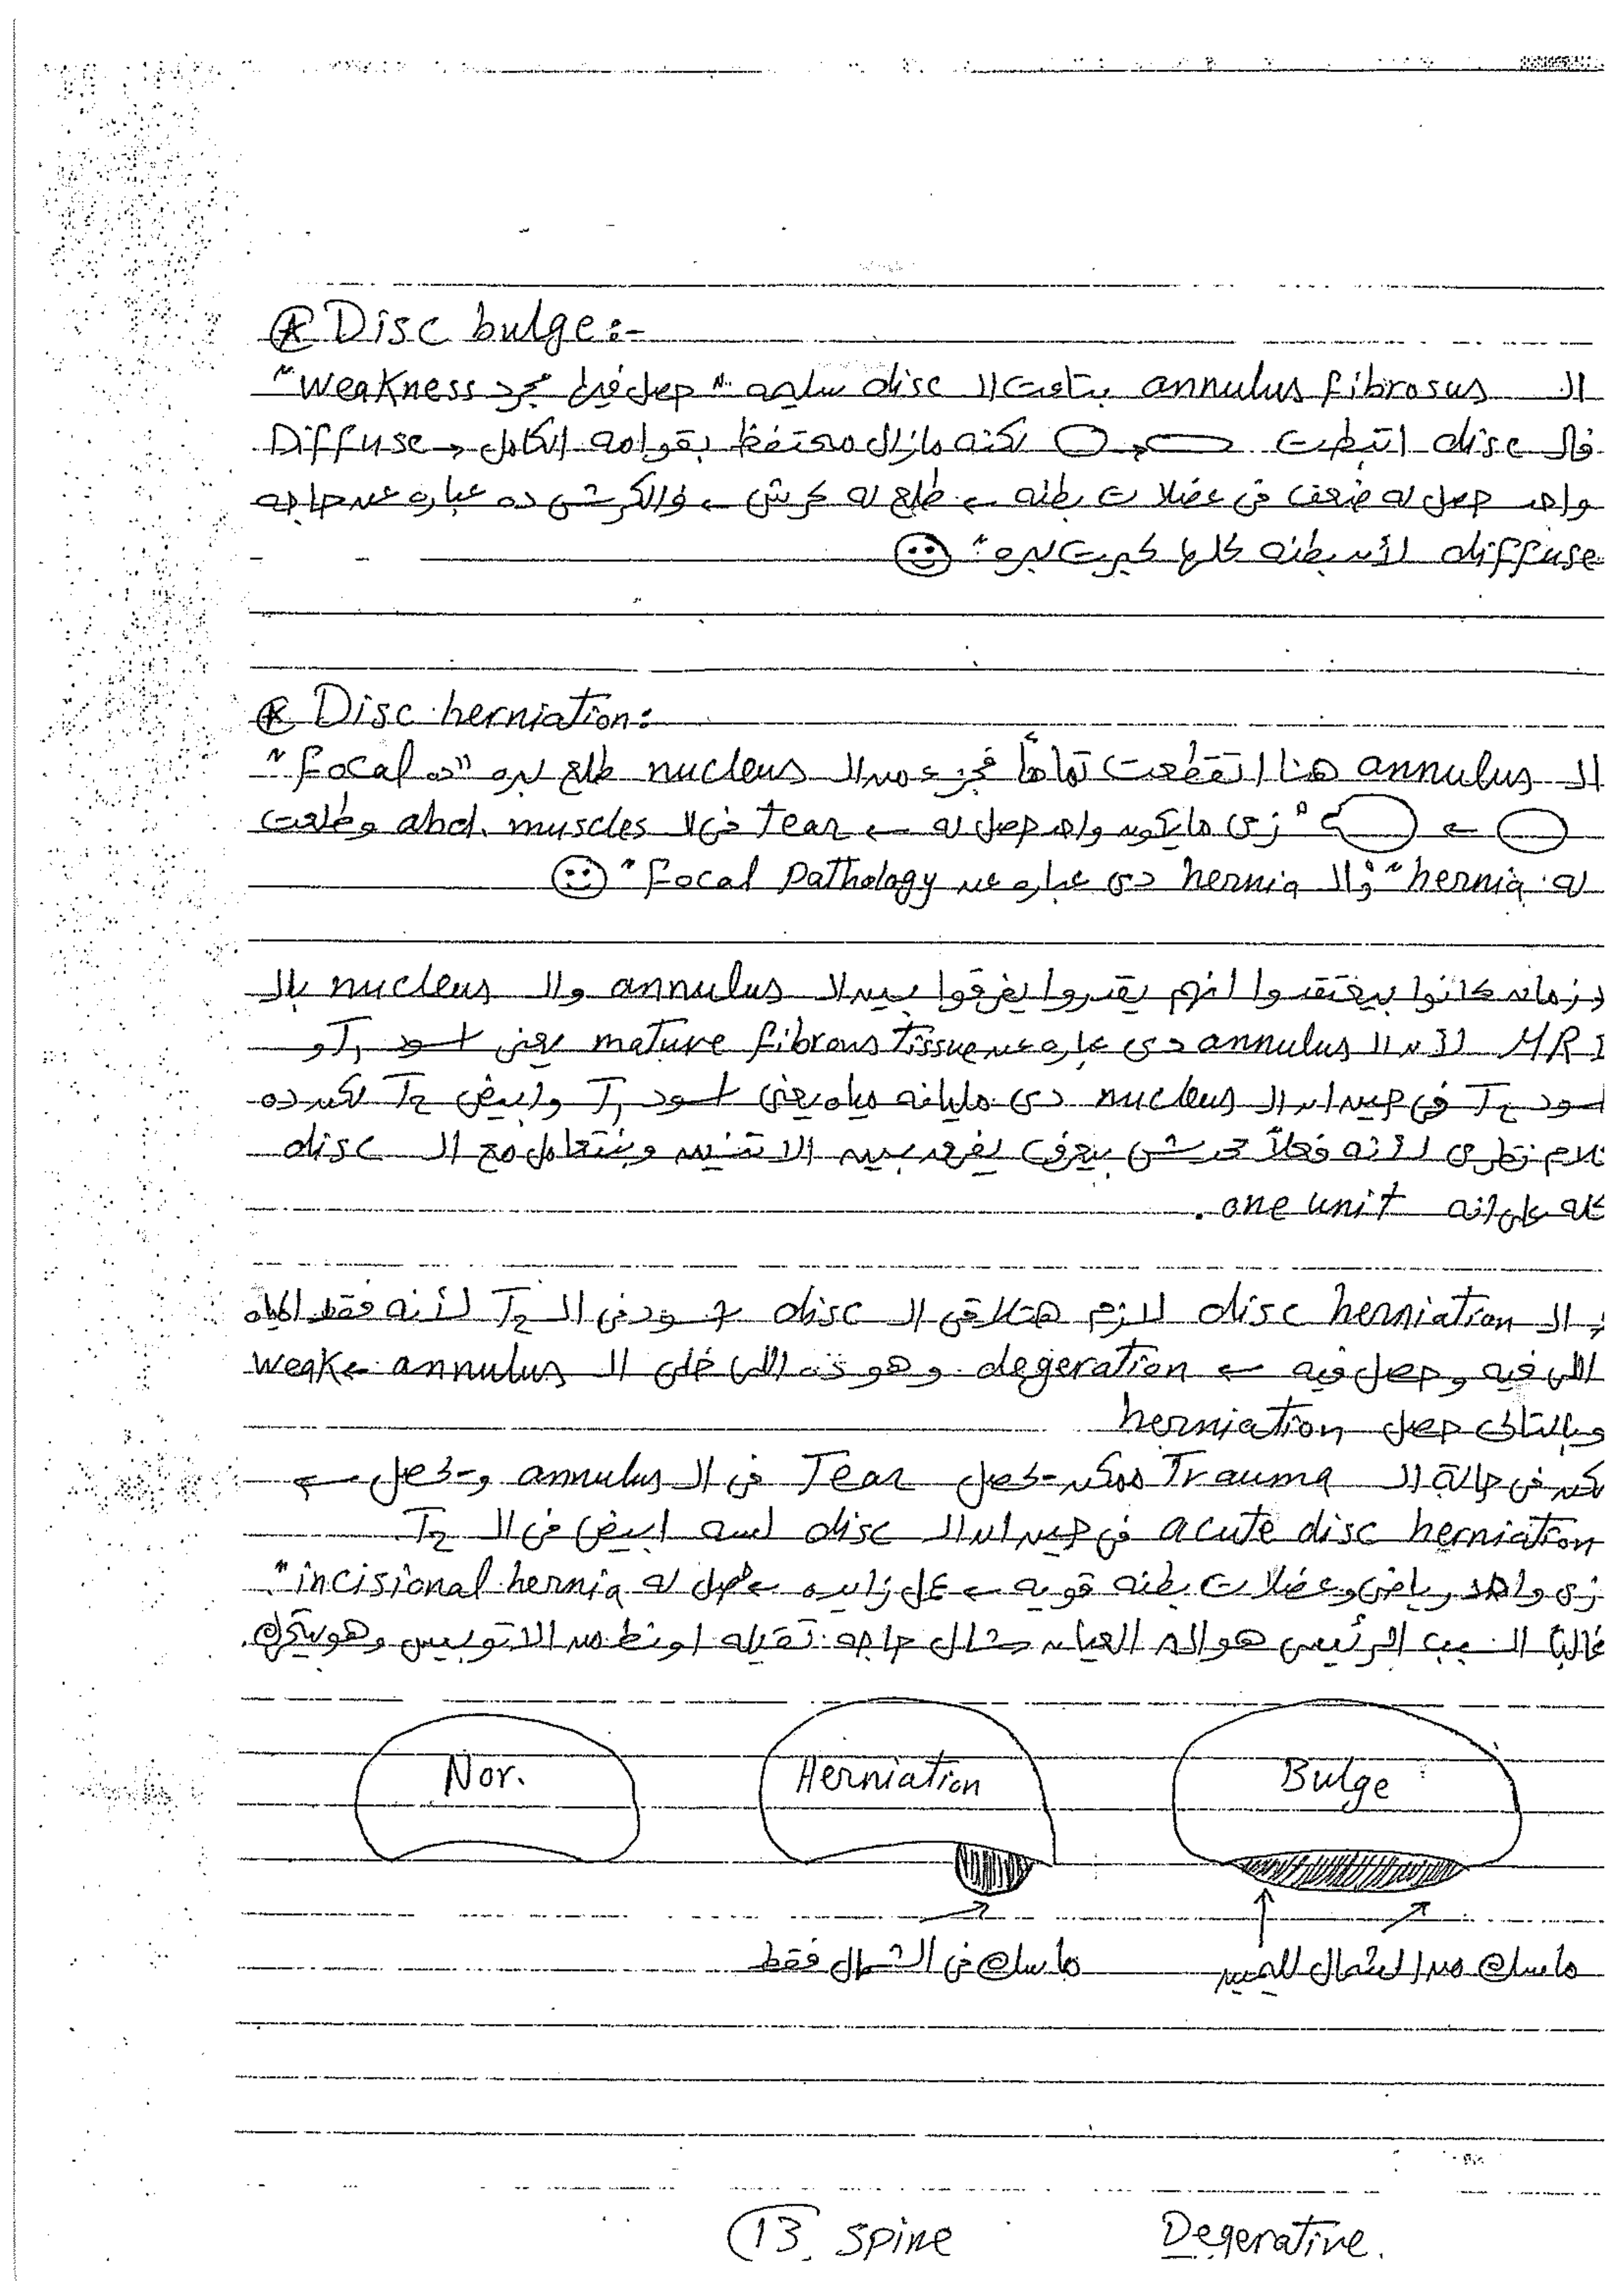 Disc bulge:-
الـ annulus fibrosus بتاعت الـ disc سليمه " حصل فيها مجرد weakness "
فالـ disc اتبططت لكنه مازال محتفظ بقوامه الكامل → Diffuse
واحد حصل له ضعف فى عضلات بطنه ← طلع له كرش ← فالكرش ده عباره عن حاجه
diffuse لأن بطنه كلها كبرت لبره "
Disc herniation:
الـ annulus هنا اتقطعت تماماً فجزء من الـ nucleus طلع لبره " ده focal "
← " زى مايكون واحد حصل له ← Tear فى الـ abd. muscles وطلعت
له hernia " والـ hernia دى عباره عن focal Pathology "
وزمان كانوا بيعتقدوا انهم يقدروا يفرقوا بين الـ annulus والـ nucleus بالـ
MRI لأن الـ annulus دى عباره عن mature fibrous Tissue يعنى اسود T1 و
اسود T2 فى حين ان الـ nucleus دى مليانه مياه يعنى اسود T1 وابيض T2 لكن ده
كلام نظرى لأنه فعلاً محدش بيعرف يفرق بين الاتنين وبنتعامل مع الـ disc
كله على انه one unit .
الـ disc herniation لازم هتلاقى الـ disc اسود فى الـ T2 لأنه فقد المياه
اللى فيه وحصل فيه ← degeration وهو ده اللى خلى الـ annulus ← weak
وبالتالى حصل herniation
لكن فى حالة الـ Trauma ممكن يحصل Tear فى الـ annulus ويحصل ←
acute disc herniation فى حين ان الـ disc لسه ابيض فى الـ T2
زى واحد رياضى وعضلات بطنه قويه ← عمل زايده ← حصل له incisional hernia "
غالباً السبب الرئيسى هو ان العيان شال حاجه تقيله او نط من الاتوبيس وهو بيتحرك.
Nor. Herniation Bulge
ماسك فى الشمال فقط ماسك من الشمال لليمين
13 spine Degerative.